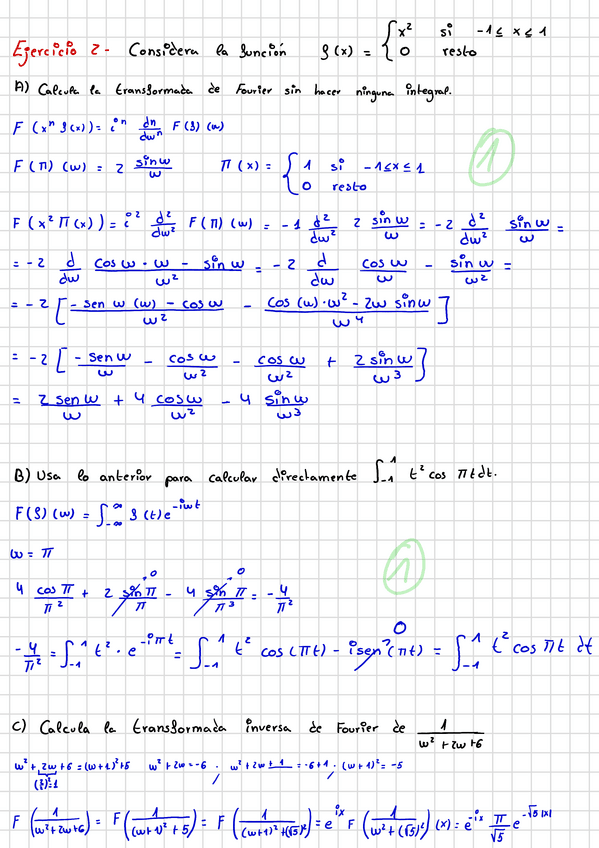 Ejercicio 2- Considera la función f(x) = { x² si -1 ≤ x ≤ 1
0 resto
A) Calcula la transformada de Fourier sin hacer ninguna integral.
F (xⁿ f(x)) = iⁿ dn/dwⁿ F(f)(w)
F(Π)(w) = 2 sinw/w Π(x) = { 1 si -1≤x≤1
0 resto
1
F(x² Π(x)) = i² d²/dw² F(Π)(w) = -1 d²/dw² 2 sinw/w = -2 d²/dw² sinw/w =
= -2 d/dw (cosw·w - sinw)/w² = -2 d/dw cosw/w - sinw/w² =
= -2 [ (-senw(w) - cosw)/w² - (cos(w)·w² - 2w sinw)/w⁴ ]
= -2 [ -senw/w - cosw/w² - cosw/w² + 2sinw/w³ ]
= 2senw/w + 4 cosw/w² - 4 sinw/w³
B) Usa lo anterior para calcular directamente ∫₋₁¹ t² cos πt dt.
F(f)(w) = ∫₋∞^∞ f(t)e^-iwt
w = π
1
4 cosπ/π² + 2 sinπ/π - 4 sinπ/π³ = -4/π²
-4/π² = ∫₋₁¹ t² · e^-iπt = ∫₋₁¹ t² cos(πt) - isen(πt) = ∫₋₁¹ t² cos πt dt
C) Calcula la transformada inversa de Fourier de 1/(w² + 2w + 6)
w² + 2w + 6 = (w+1)² + 5 w² + 2w = -6 , w² + 2w + 1 = -6 + 1 , (w+1)² = -5
(2/2)² = 1
F (1/(w²+2w+6)) = F (1/((w+1)² + 5)) = F (1/((w+1)² + (√5)²)) = e^ix F (1/(w² + (√5)²)) (x) = e^-ix π/√5 e^-√5|x|